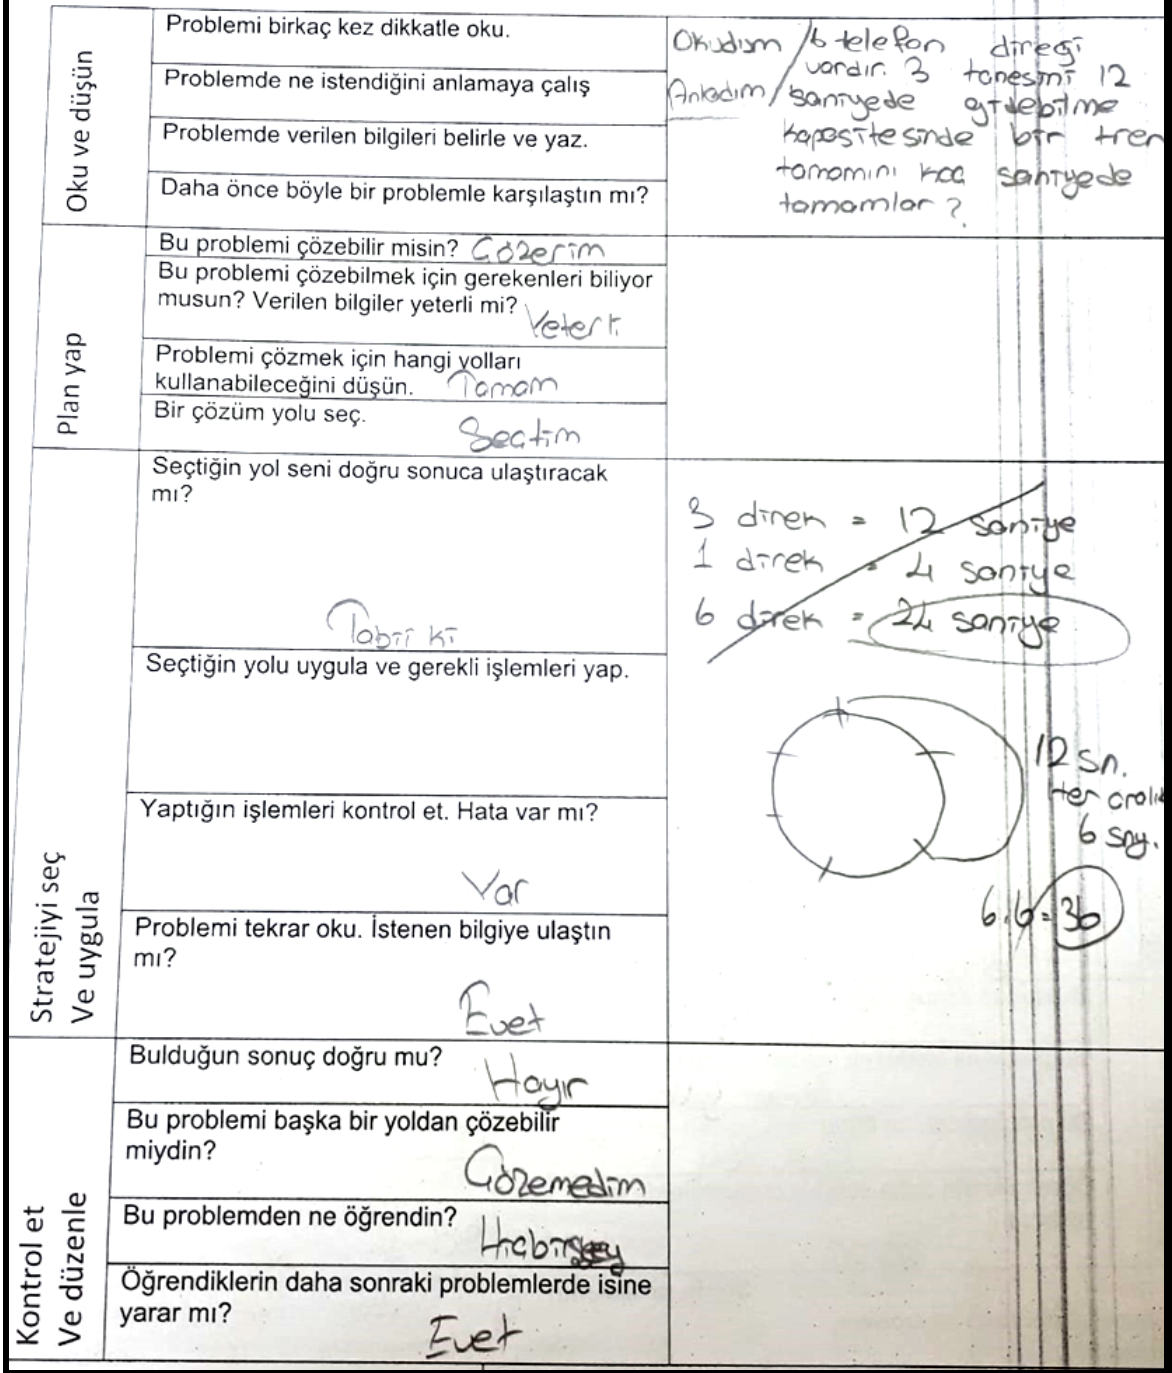 Oku ve düşün
Problemi birkaç kez dikkatle oku.
Okudum
Problemde ne istendiğini anlamaya çalış
Anladım
Problemde verilen bilgileri belirle ve yaz.
Daha önce böyle bir problemle karşılaştın mı?
6 telefon direği
vardır. 3 tanesini 12
saniyede gidebilme
kapasitesinde bir tren
tamamını kaç saniyede
tamamlar?
Plan yap
Bu problemi çözebilir misin? Çözerim
Bu problemi çözebilmek için gerekenleri biliyor
musun? Verilen bilgiler yeterli mi?
Yeterli
Problemi çözmek için hangi yolları
kullanabileceğini düşün. Tamam
Bir çözüm yolu seç.
Seçtim
Stratejiyi seç
Ve uygula
Seçtiğin yol seni doğru sonuca ulaştıracak
mı?
Tabii ki
3 direk = 12 saniye
1 direk = 4 saniye
6 direk = 24 saniye
Seçtiğin yolu uygula ve gerekli işlemleri yap.
12 sn.
Her aralık
6 sny.
6.6=36
Yaptığın işlemleri kontrol et. Hata var mı?
Var
Problemi tekrar oku. İstenen bilgiye ulaştın
mı?
Evet
Kontrol et
Ve düzenle
Bulduğun sonuç doğru mu?
Hayır
Bu problemi başka bir yoldan çözebilir
miydin?
Çözemedim
Bu problemden ne öğrendin?
Hiçbirşey
Öğrendiklerin daha sonraki problemlerde isine
yarar mı?
Evet